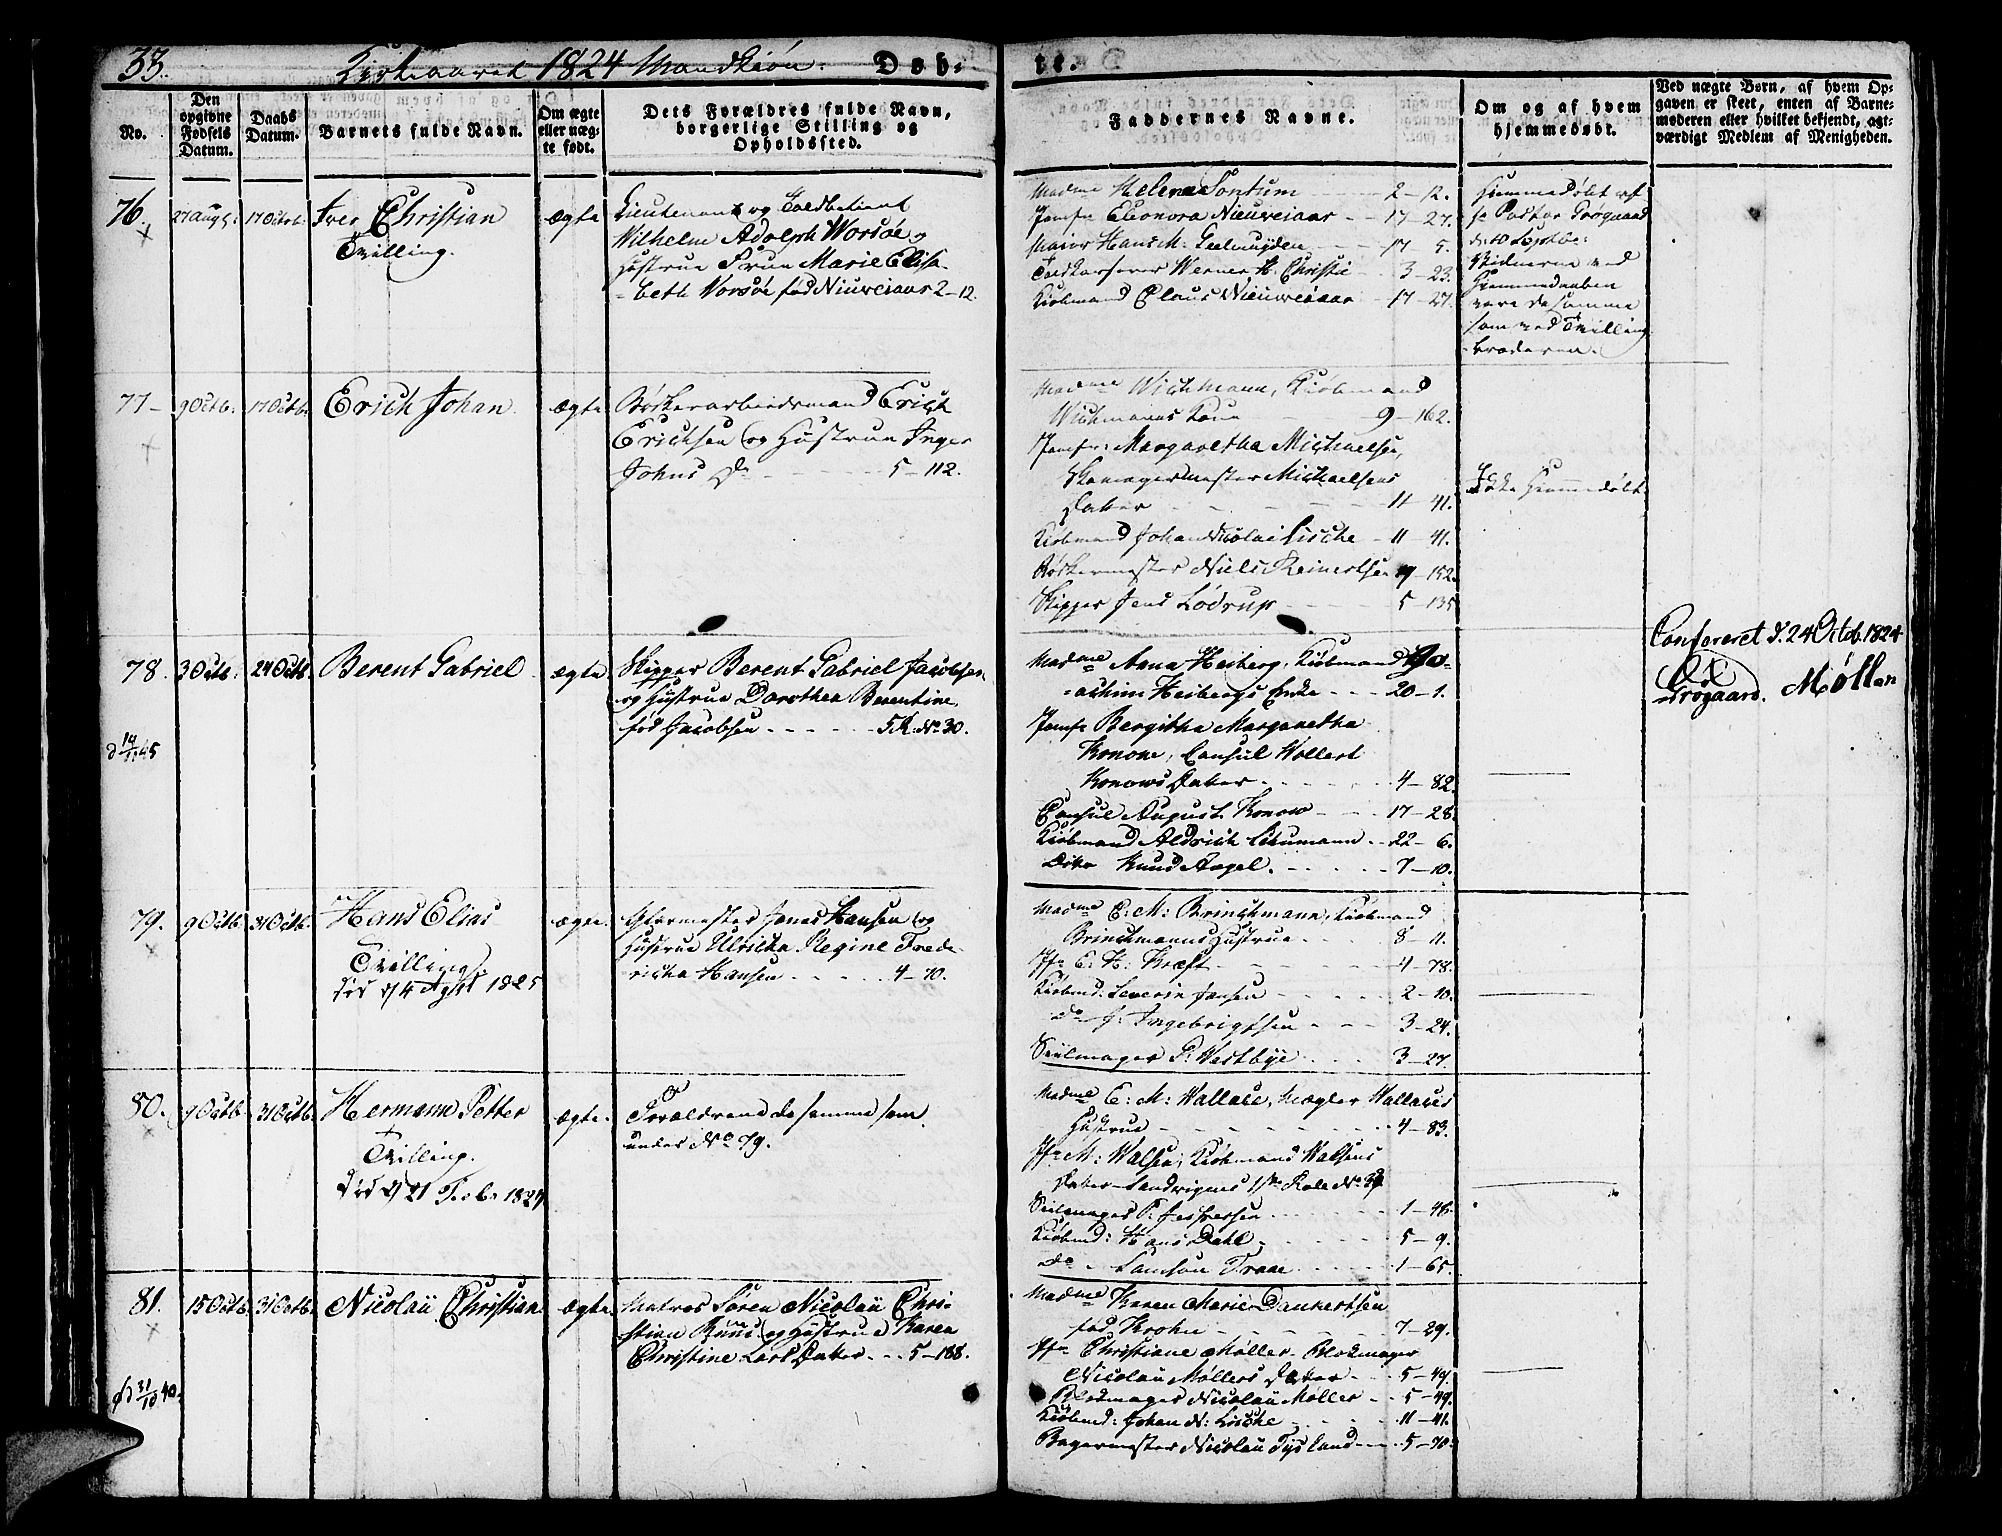 33.
Kirkeaaret 1824 Mandkiøn.
Døb-
te.
No.
Den
opgivne
Fødsels
Datum.
Daabs
Datum.
Barnets fulde Navn.
Om ægte
eller uæg-
te født.
Dets Forældres fulde Navn,
borgerlige Stilling og
Opholdssted.
Faddernes Navne.
Om og af hvem
hjemmedøbt.
Ved uægte Børn, af hvem Op-
gaven er skeet, enten af Barne-
moderen eller hvilket bekjendt, agt-
værdigt Medlem af Menigheden.
76.
27 Aug.
17 Octb.
Iver Christian
Tvilling.
ægte
Lieutenant og Toldbetient
Wilhelm Adolph Worsøe og
Hustrue Frue Marie Elisa-
beth Worsøe fød Nieuweiaar 2-12.
Madme Helena Sontum 2-12.
Jomfr Eleonora Nieuweiaar 17-27.
Maior Hans M: Geelmuyden 17-5.
Toldkasserer Werner H. Christi 3-23.
Kiøbmand Claus Nieuweiaar 17-27.
Hiemmedøbt af
Hr Pastor Grogaard
Vidnerne ved
Hiemmedaaben
vare de samme
som ved Tvilling
broderen.
77-
9 Octb:
17 Octb.
Erich Johan
ægte
Bødkerarbeidsmand Erich
Erichsen og Hustrue Inger
Johns Dr 5-112.
Madme Wichmann, Kiøbmand
Wichmanns Kone 9-162.
Jomfr: Margaretha Michaelsen,
Skomagermester Michaelsens
Datter 11-41.
Kiøbmand Johan Nicolai Lische 11-41.
Bødkermester Niels Reinertsen 9-152.
Skipper Jens Lodrup 5-135
Ikke Hiemmedøbt.
78.
3 Octb.
24 Octb.
Berent Gabriel
ægte
Skipper Berent Gabriel Jacobsen
og Hustrue Dorothea Berentine
fød Jacobsen 5 R. No 30.
Madme Anna Heiberg, Kiøbmand Jo-
achim Heibergs Enke 20-1.
Jomfr Bergitha Margaretha
Konow, Consul Wollert
Konows Datter 4-82.
Consul August Konow 17-28.
Kiøbmand Aldrich Schumann 22-6.
Dito Knud Angel. 7-10.
Confereret d. 24 Octob. 1824
Grogaard. Møller
79.
9 Octb.
31 Octb.
Hans Elias
Tvilling
død d/4 Agst 1825
ægte.
Hustrue Ulricha Regine Frede-
richa Hansen 4-70.
Madme C: M: Brinchmann, Kiøbmand
Brinchmanns Hustrue 8-11.
Jfr C: H: Kræft 4-78.
Kiøbmd: Severin Jansen 2-10.
do J: Ingebrigtsen 3-24.
Seilmager P: Westbye 3-27.
80.
9 Octb
31 Octb.
Hermann Petter
Tvilling.
død d/21 Febr 1827
ægte.
Forældrene de samme som
under No 79.
Madme E: M: Wallace, Mægler Wallaces
Hustrue 4-83.
Jfr M: Walsen, Kiøbmand Walsens
Seilmager P: Jespersen 1-46.
Kiøbmd: Hans Dahl 5-9.
do Samson Traae 1-65.
81.
15 Octb.
31 Octb.
Nicolaii Christian
ægte.
Matros Søren Nicolaii Chri-
stian Ruus og Hustrue Karen
Christine Lars Datter 5-188.
Madme Karen Marie Dankertsen
fød Krohn 7-29.
Jfr Christiane Møller, Blokmager
Nicolaii Møllers Datter 5-49.
Blokmager Nicolaii Møller 5-49.
Kiøbmd: Johan N: Lische 11-41.
Bagermester Nicolaii Tysland 5-70.